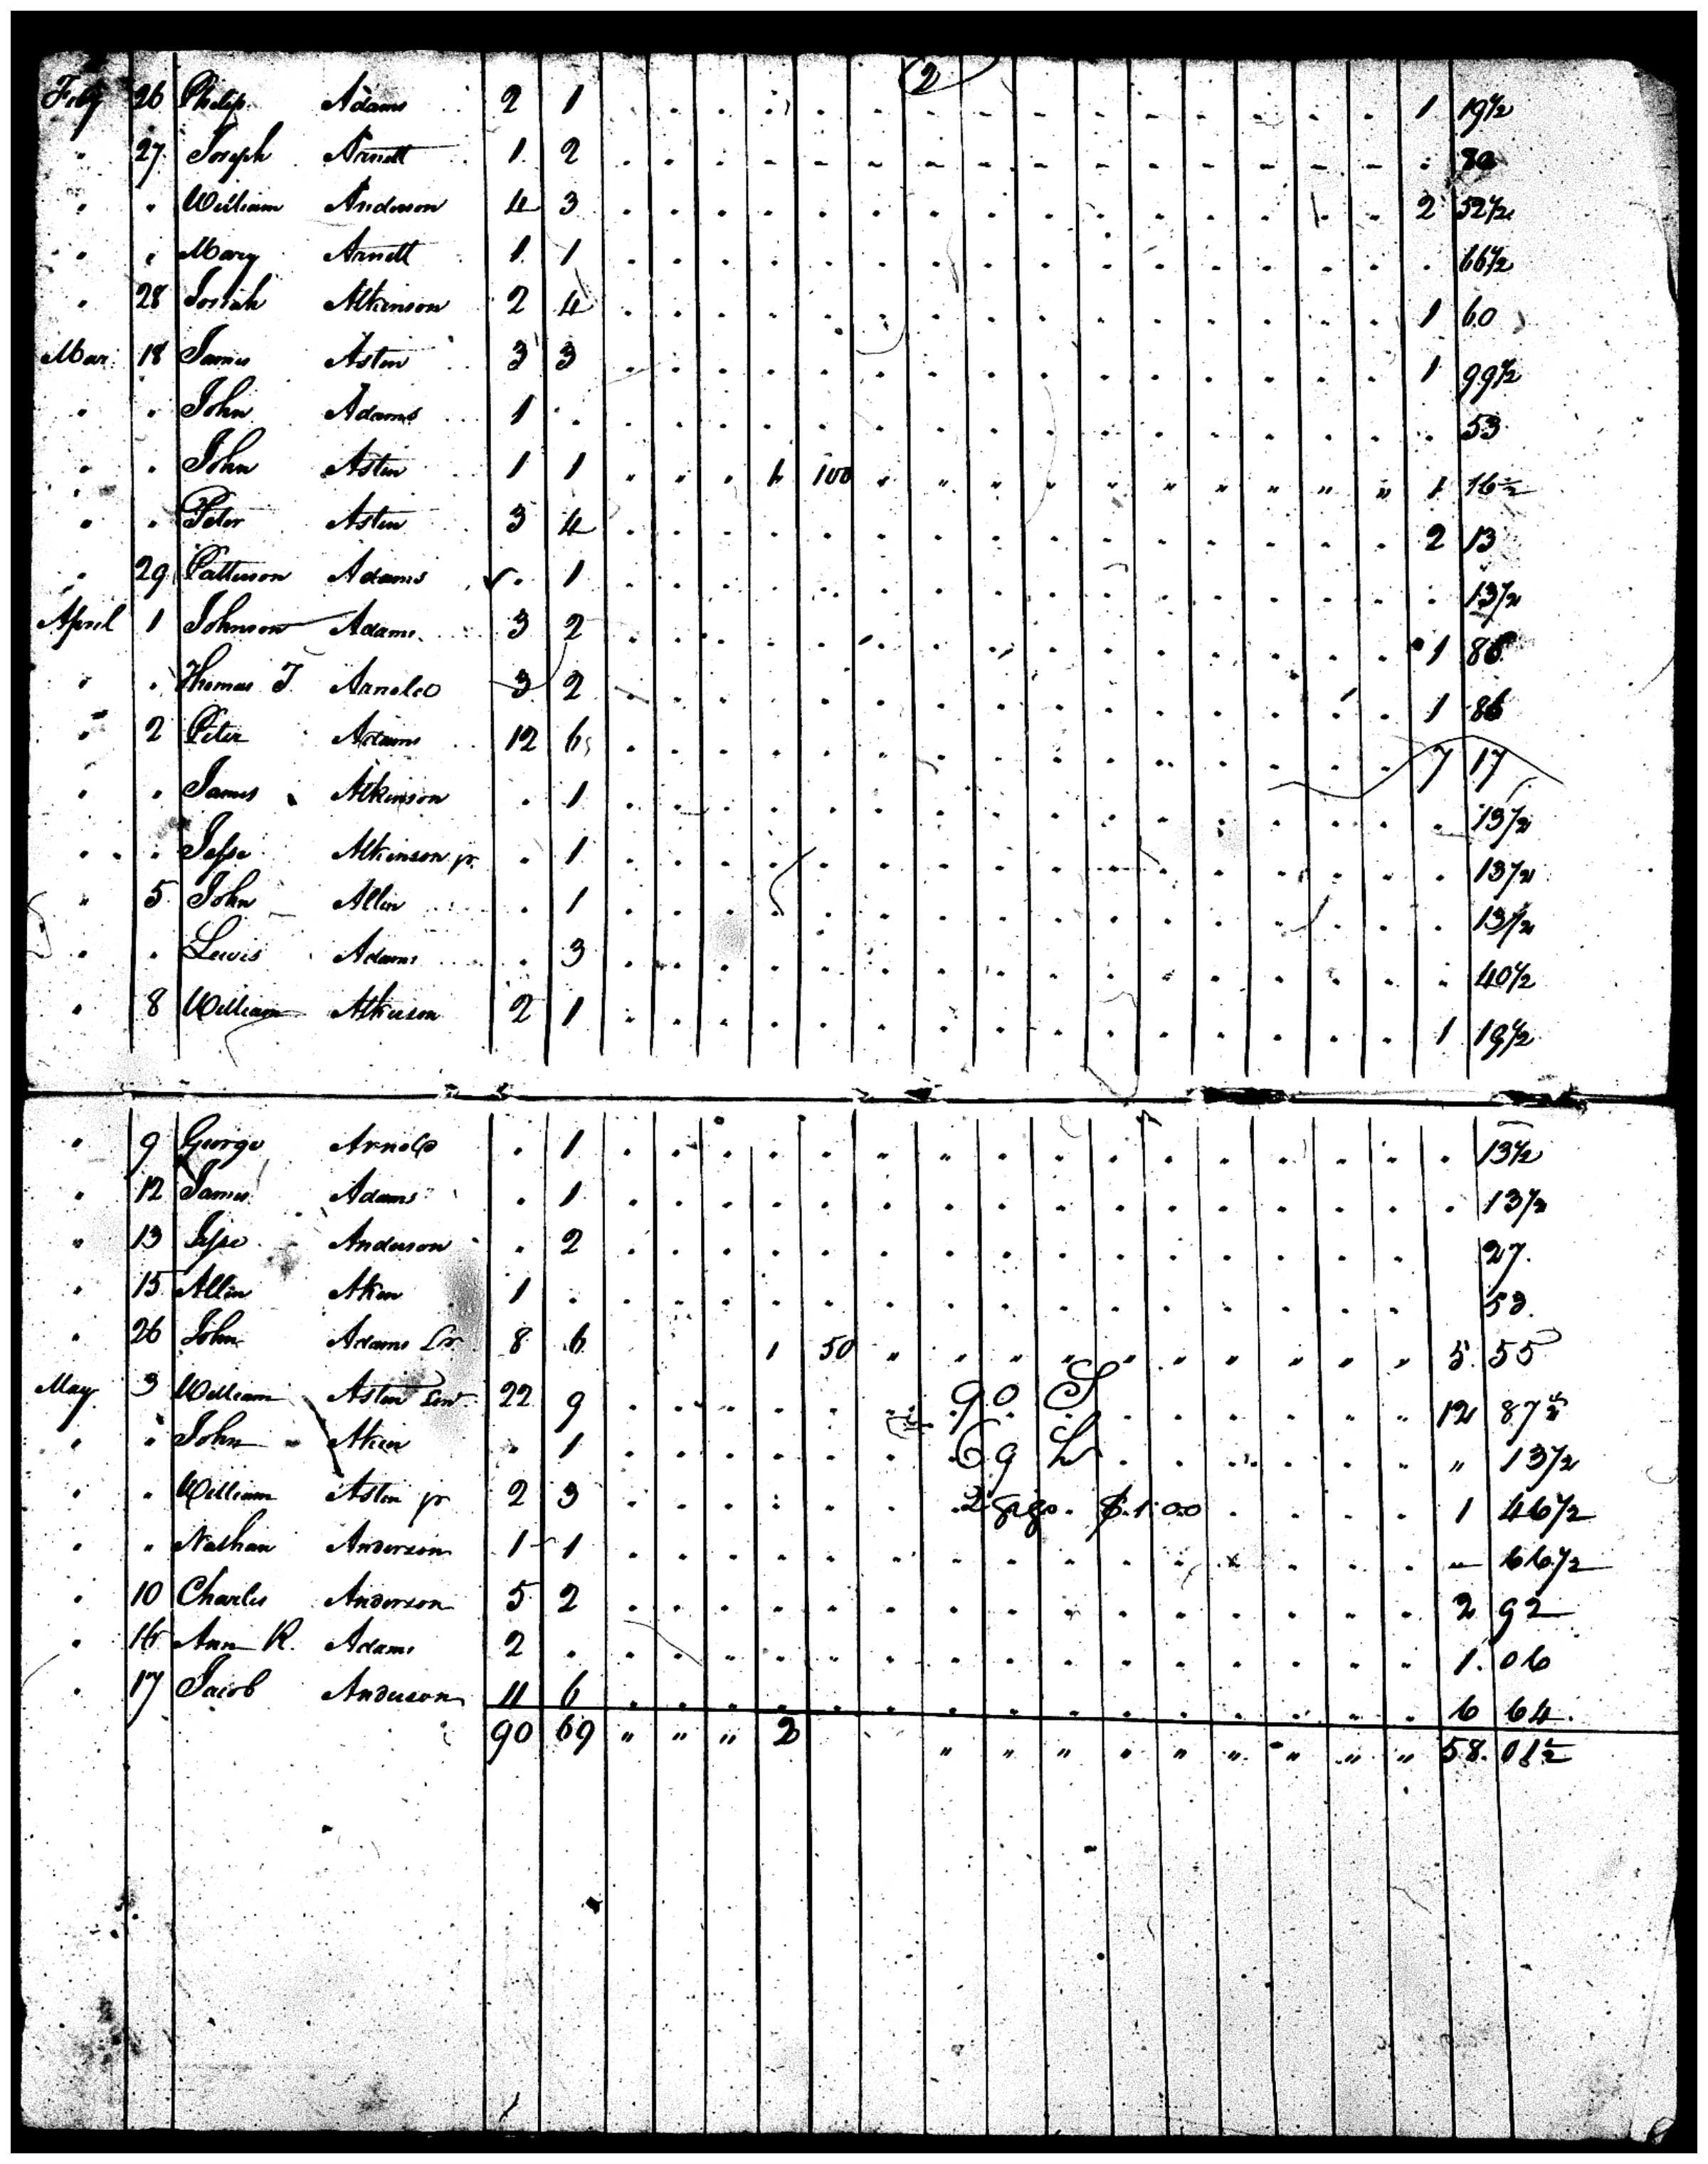 2
Feby 26 Philip Adams 2 1 1 19½
" 27 Joseph Arnett 1 2 80
" " William Anderson 4 3 2 52½
" " Mary Arnett 1 1 66½
" 28 Josiah Atkinson 2 4 1 60
Mar. 18 James Astin 3 3 1 99½
" " John Adams 1 . 53
" " John Astin 1 1 " " " 1 100 " " " " " " " " " " 1 16½
" " Peter Astin 3 4 2 13
" 29 Patterson Adams . 1 13½
April 1 Johnson Adams 3 2 1 86
" " Thomas T. Arnold 3 2 1 86
" 2 Peter Adams 12 6 7 17
" " James Atkinson . 1 13½
" " Jesse Atkinson jr. . 1 13½
" 5 John Allen . 1 13½
" " Lewis Adams . 3 40½
" 8 William Atkinson 2 1 1 19½
" 9 George Arnold . 1 13½
" 12 James Adams . 1 13½
" 13 Jesse Anderson . 2 27
" 15 Allen Aken 1 . 53
" 26 John Adams Sr. 8 6 1 50 " " " " " " " " " " 5 55
May 3 William Astin Sen 22 9 90 S 12 87½
" " John Aken " 1 69 H " 13½
" " William Astin jr 2 3 2 gigs. $1.00 1 46½
" " Nathan Anderson 1 1 " 66½
" 10 Charles Anderson 5 2 2 92
" 16 Ann R. Adams 2 . 1.06
" 17 Jacob Anderson 11 6 6 64
90 69 " " " 2 " " " " " " " " " 58. 01½